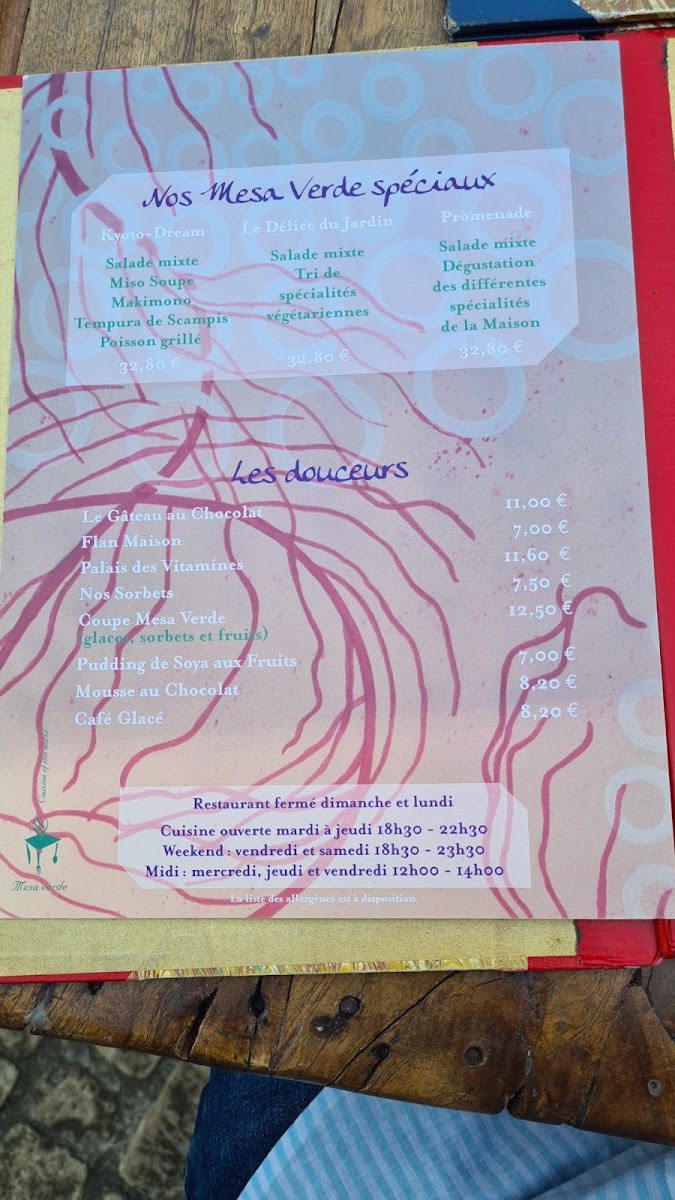 Nos Mesa Verde spéciaux
Kyoto-Dream
Salade mixte
Miso Soupe
Makimono
Tempura de Scampis
Poisson grillé
32,80 €
Le Délice du Jardin
Salade mixte
Tri de
spécialités
végétariennes
32,80 €
Promenade
Salade mixte
Dégustation
des différentes
spécialités
de la Maison
32,80 €
Les douceurs
Le Gâteau au Chocolat 11,00 €
Flan Maison 7,00 €
Palais des Vitamines 11,60 €
Nos Sorbets 7,50 €
Coupe Mesa Verde 12,50 €
(glaces, sorbets et fruits)
Pudding de Soya aux Fruits 7,00 €
Mousse au Chocolat 8,20 €
Café Glacé 8,20 €
Restaurant fermé dimanche et lundi
Cuisine ouverte mardi à jeudi 18h30 - 22h30
Weekend : vendredi et samedi 18h30 - 23h30
Midi : mercredi, jeudi et vendredi 12h00 - 14h00
La liste des allergènes est à disposition
Cuisine of the world
Mesa verde